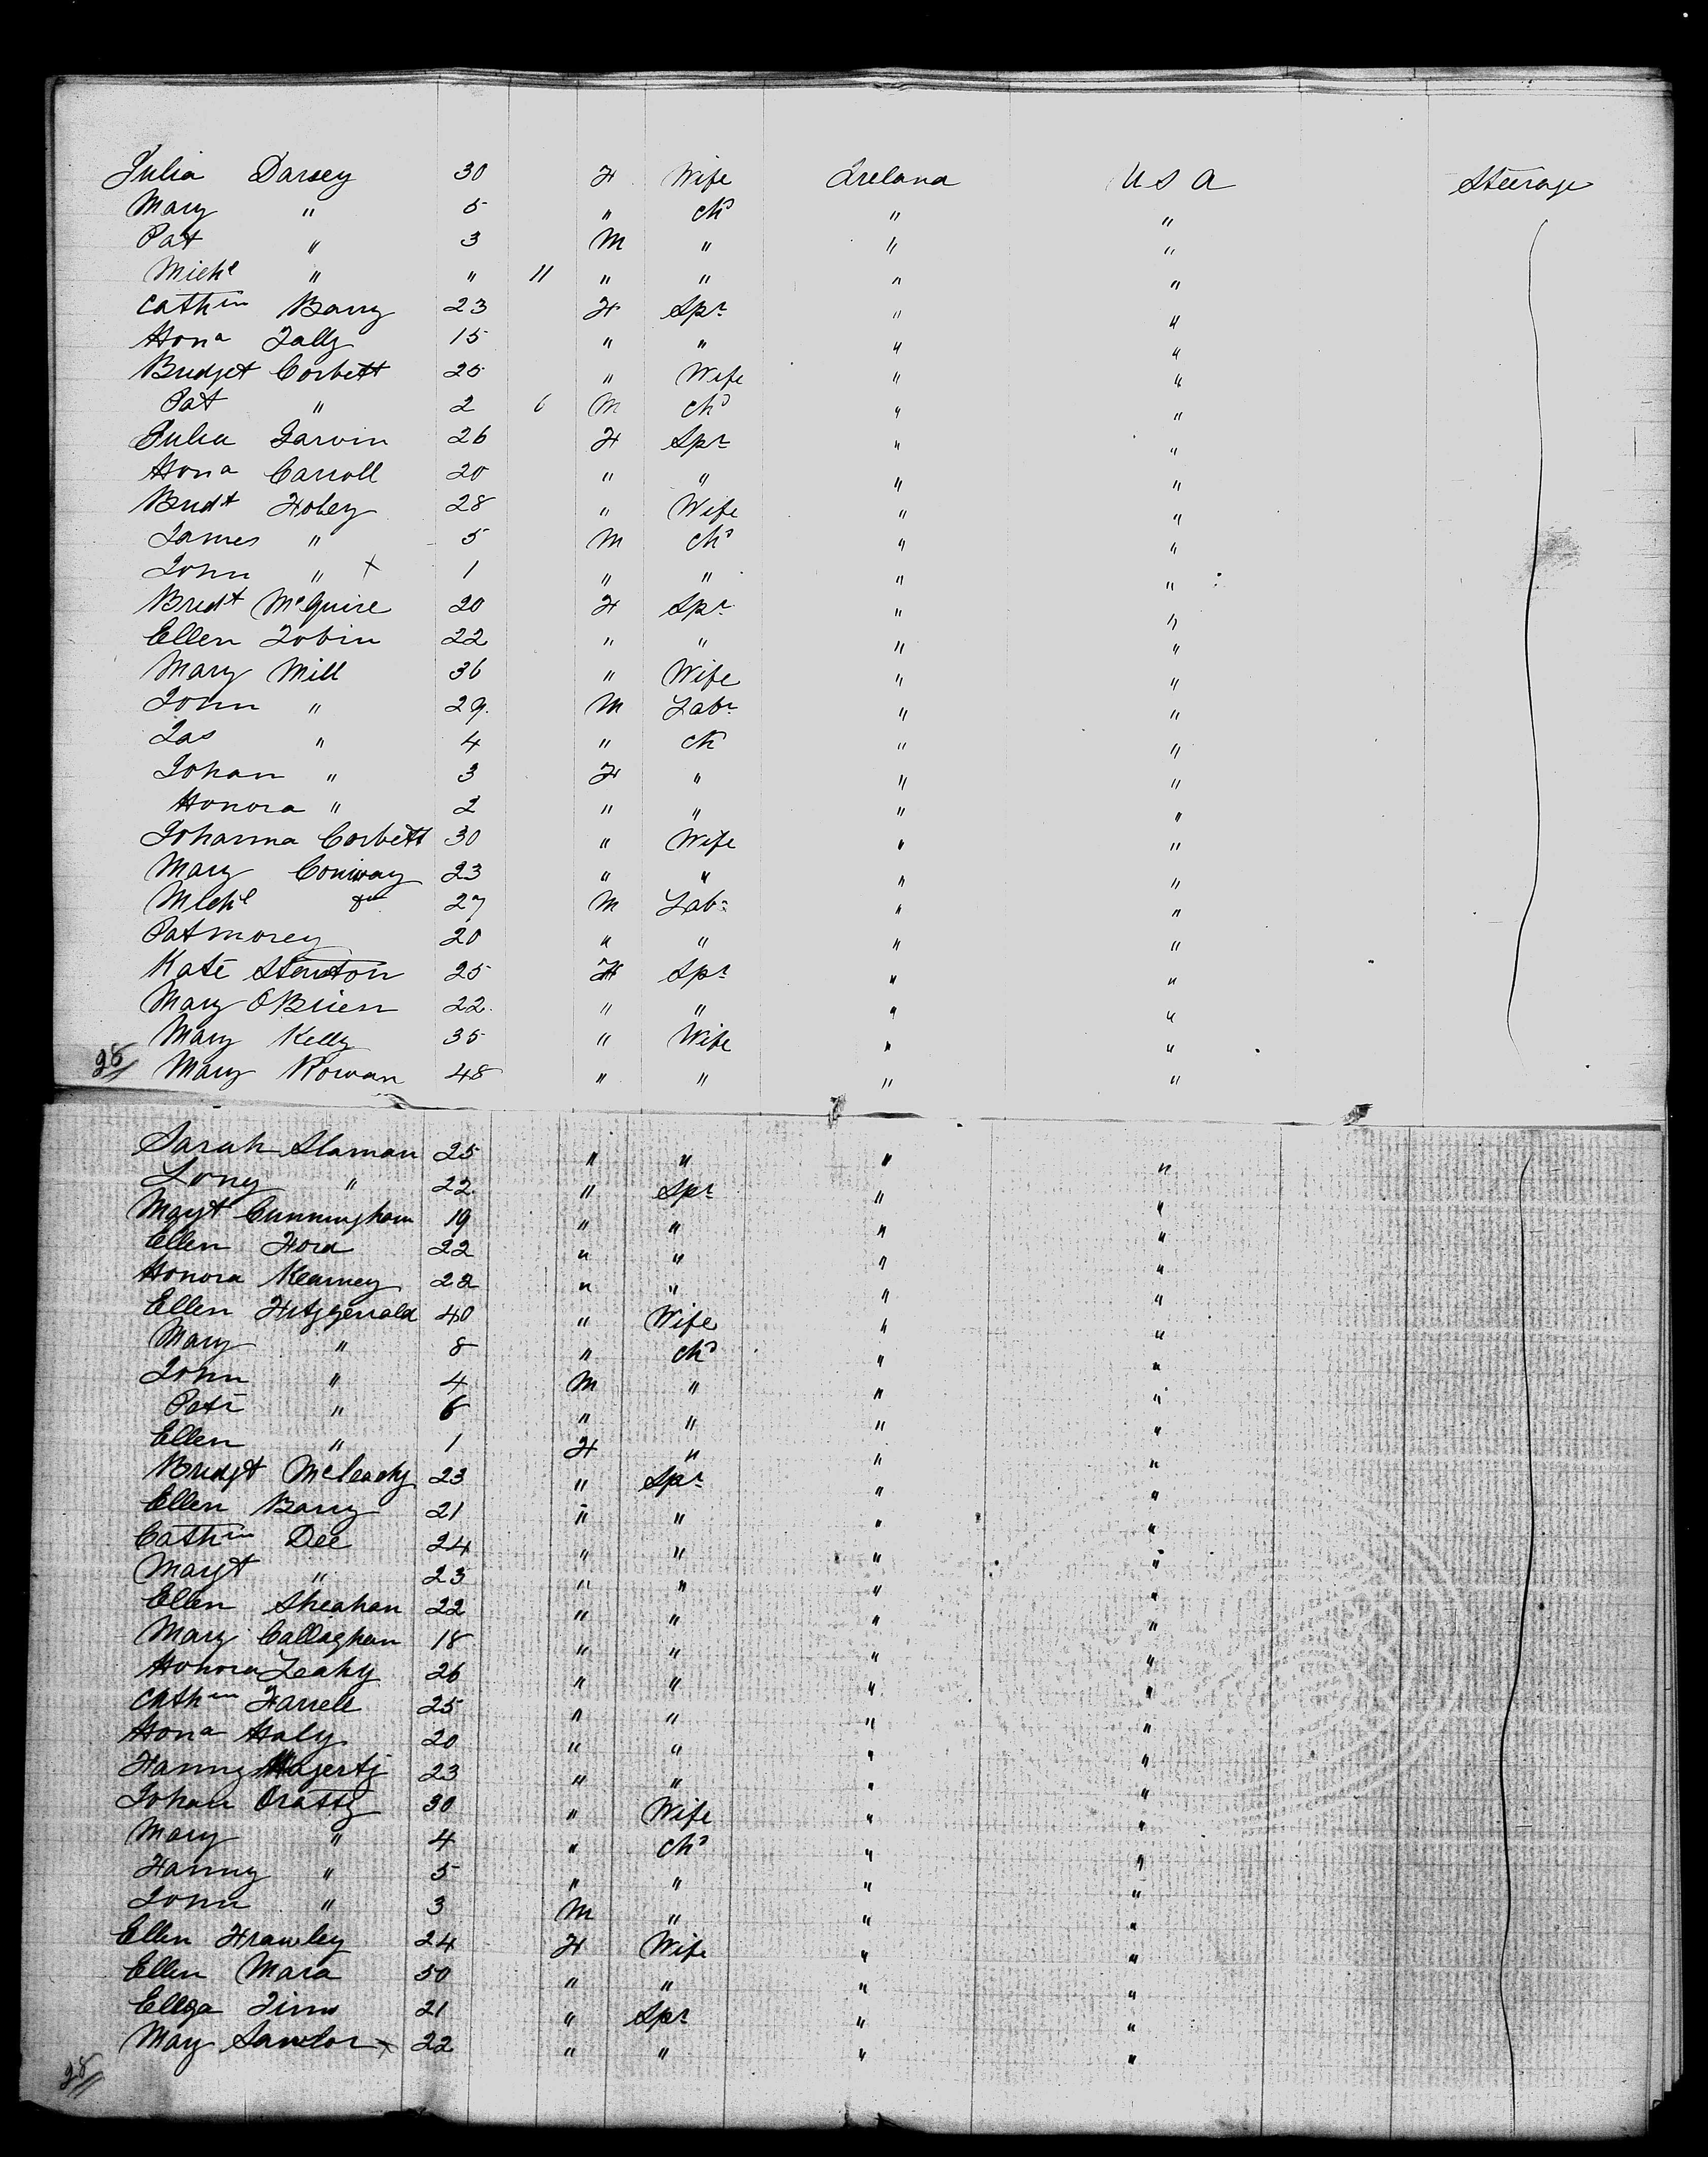 Julia Darsey 30 F Wife Ireland U S A Steerage
Mary " 5 " chd " "
Pat " 3 M " " "
Michl " " 11 " " " "
Cathin Barry 23 F Spr " "
Hona Tally 15 " " " "
Bridget Corbett 25 " Wife " "
Pat " 2 6 M chd " "
Julia Jarvin 26 F Spr " "
Hona Carroll 20 " " " "
Bridt Foley 28 " Wife " "
James " 5 M chd " "
John " X 1 " " " "
Bridt McGuire 20 F Spr " "
Ellen Tobin 22 " " " "
Mary Mill 36 " Wife " "
John " 29 M Labr " "
Jas " 4 " ch " "
Johan " 3 F " " "
Honora " 2 " " " "
Johanna Corbett 30 " Wife " "
Mary Conway 23 " " " "
Michl do 27 M Labr " "
Pat morey 20 " " " "
Kate Stanton 25 F Spr " "
Mary OBrien 22 " " " "
Mary Kelly 35 " Wife " "
28 Mary Rowan 48 " " " "
Sarah Slaman 25 " " " "
Long " 22 " Spr " "
Margt Cunningham 19 " " " "
Ellen Ford 22 " " " "
Honora Kearney 22 " " " "
Ellen Fitzgerrald 40 " Wife " "
Mary " 8 " chd " "
John " 4 M " " "
Patr " 6 " " " "
Ellen " 1 F " " "
Bridgt McLeachy 23 " Spr " "
Ellen Barry 21 " " " "
Cathin Dee 24 " " " "
Margt " 23 " " " "
Ellen Sheahan 22 " " " "
Mary Callaghan 18 " " " "
Honora Leahy 26 " " " "
Cathin Farrell 25 " " " "
Hona Haly 20 " " " "
Fanny Hagerty 23 " " " "
Johan Oratty 30 " Wife " "
Mary " 4 " chd " "
Fanny " 5 " " " "
John " 3 M " " "
Ellen Frawley 24 F Wife " "
Ellen Mara 50 " " " "
Eliza Tims 21 " Spr " "
May Sawlor x 22 " " " "
28